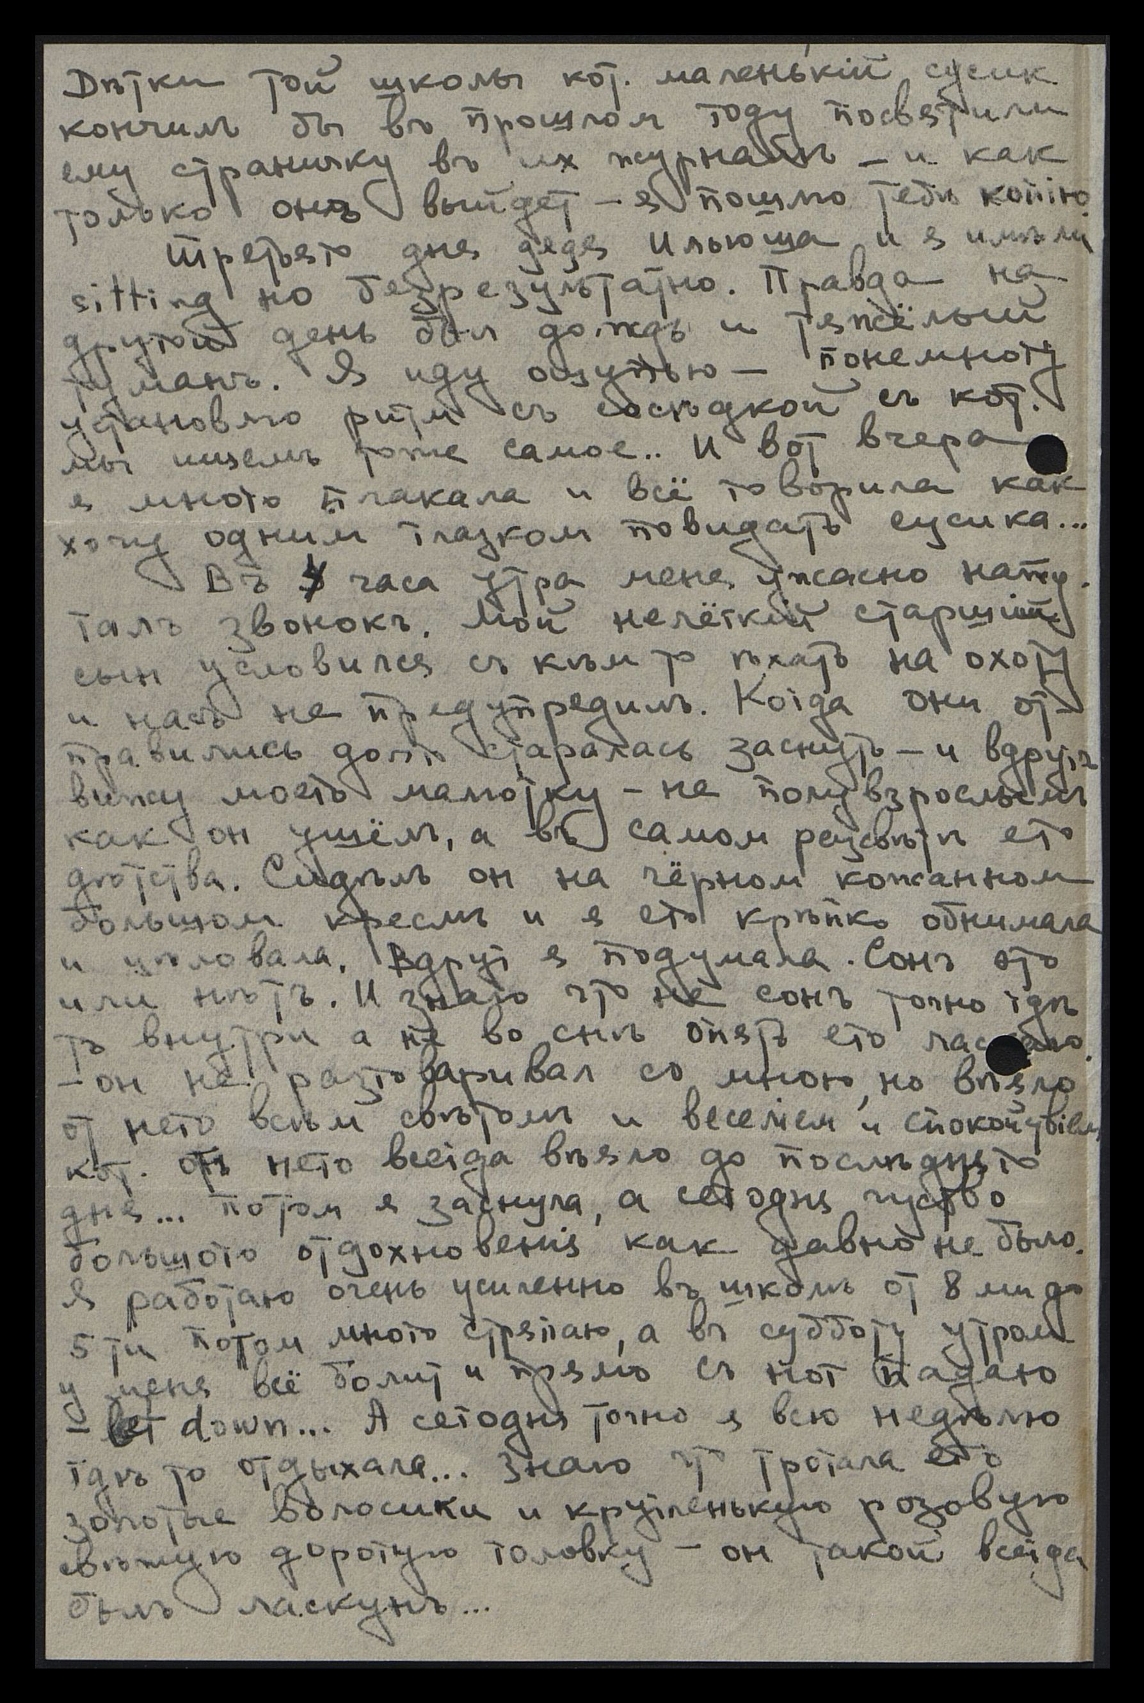 Дѣтки той школы кот. маленькій сусик
кончилъ бы въ прошлом году посвятили
ему страничку въ их журналѣ – и как
только онъ выйдет – я пошлю тебѣ копію.
Третьего дня дядя Ильюша и я имѣли
sitting но безрезультатно. Правда на
другой день был дождь и тяжёлый
туманъ. Я иду ощупью – понемногу
установлю ритм съ сосѣдкой съ кот.
мы ищемъ тоже самое.. И вот вчера
я много плакала и всё говорила как
хочу одним глазком повидать сусика...
Въ 4 часа утра меня ужасно напу-
галъ звонокъ. Мой нелёгкій старшій
сын условился съ кѣм то ѣхать на охоту
и насъ не предупредилъ. Когда они от-
правились долго старалась заснуть – и вдругъ
вижу моего малютку – не полувзрослымъ
как он ушёлъ, а въ самом разсвѣтѣ его
дѣтства. Сидѣлъ он на чёрном кожанном
большом креслѣ и я его крѣпко обнимала
и цѣловала. Вдруг я подумала. Сонъ это
или нѣтъ. И знаю что не сонъ точно гдѣ
то внутри а не во снѣ опять его ласкаю.
– он не разговаривал со мною, но вѣяло
от него всѣм свѣтомъ и веселіем и спокойствіем
кот. отъ него всегда вѣяло до послѣдняго
дня... потом я заснула, а сегодня чуство
большого отдохновенія как давно не было.
Я работаю очень усиленно въ школѣ от 8 ми до
5 ти потом много стряпаю, а въ субботу утром
у меня всё болит и прямо съ ног падаю
– let down... А сегодня точно я всю недѣлю
гдѣ то отдыхала... Знаю что трогала его
золотые волосики и кругленькую розовую
свѣжую дорогую головку – он такой всегда
былъ ласкунъ...